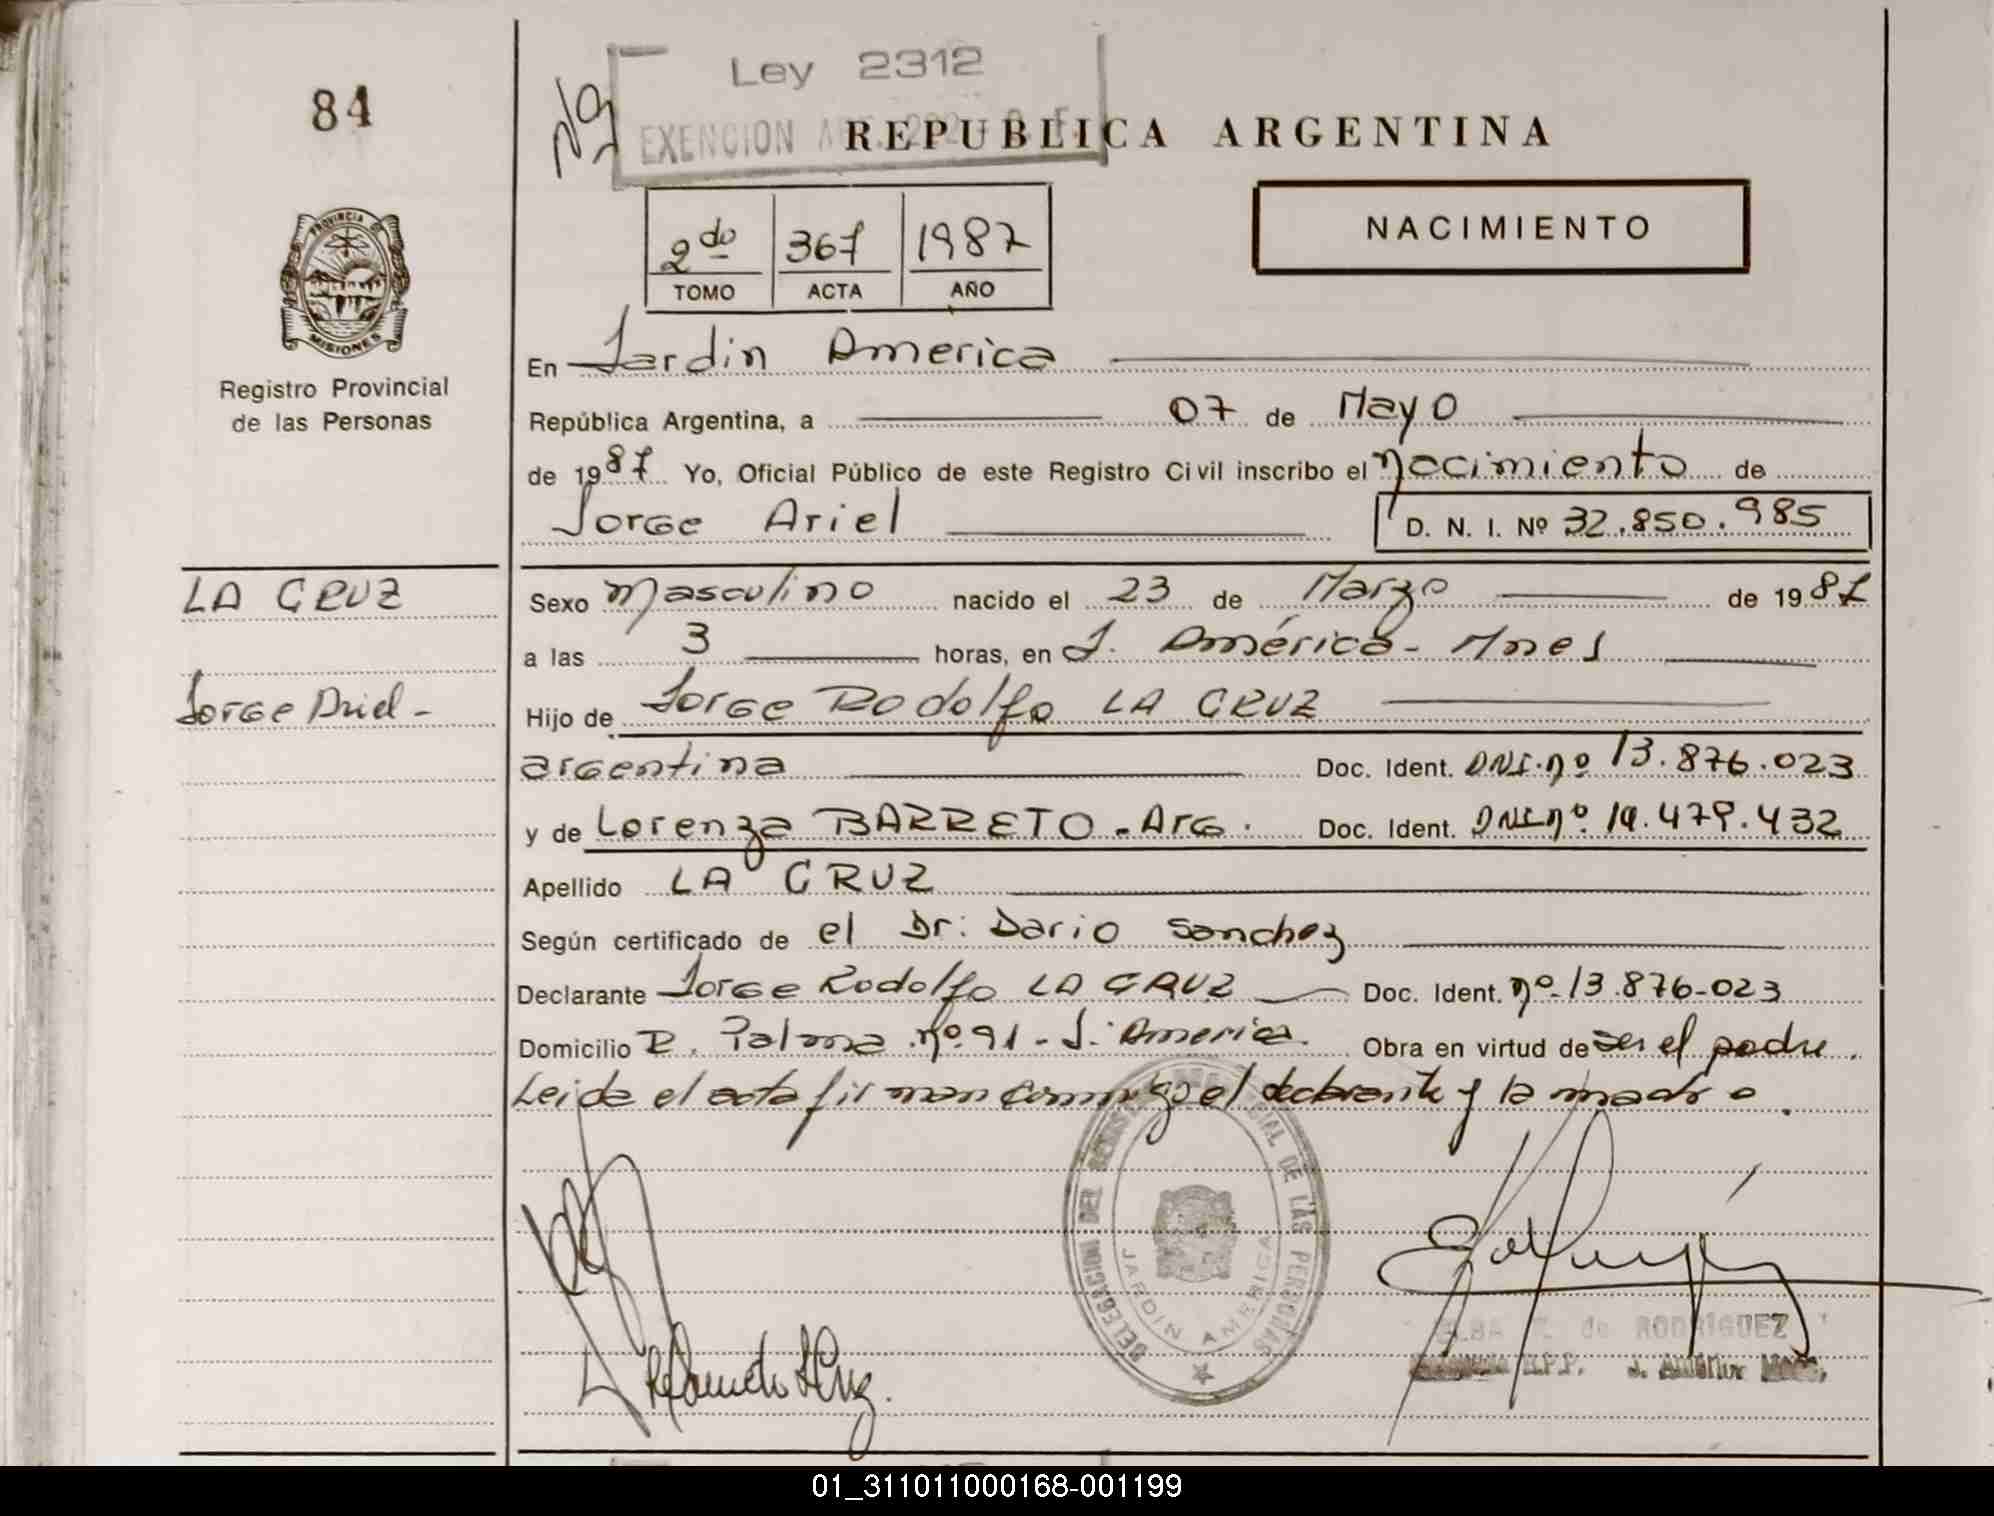 84
Ley 2312
EXENCION
REPUBLICA ARGENTINA
NACIMIENTO
2do 367 1987
TOMO ACTA AÑO
PROVINCIA DE
MISIONES
Registro Provincial
de las Personas
En Jardin America
República Argentina, a 07 de Mayo
de 1987 Yo, Oficial Público de este Registro Civil inscribo el nacimiento de
Jorge Ariel D. N. I. Nº 32.850.985
LA CRUZ
Jorge Ariel -
Sexo masculino nacido el 23 de Marzo de 1987
a las 3 horas, en J. América - Mnes
Hijo de Jorge Rodolfo LA CRUZ
argentina Doc. Ident. DNI. nº 13.876.023
y de Lorenza BARRETO - Arg. Doc. Ident. DNI nº. 14.479.432
Apellido LA CRUZ
Según certificado de el Dr: Dario Sanchez
Declarante Jorge Rodolfo LA CRUZ Doc. Ident. nº 13.876-023
Domicilio R. Palma nº 91 - J. America. Obra en virtud de ser el padre.
Leida el acta firman conmigo el declarante y la madre.
DELEGACION DEL REGISTRO PROVINCIAL DE LAS PERSONAS
JARDIN AMERICA
ELBA de RODRIGUEZ
R.P.P. J. América Mnes.
01_311011000168-001199